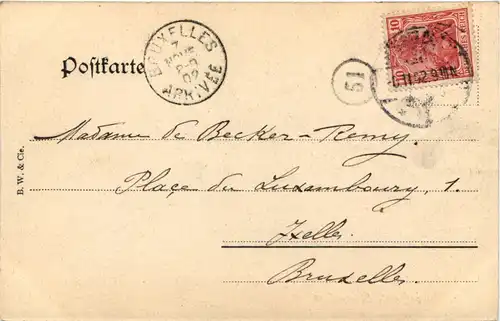 Postkarte
BRUXELLES
7
NOVE
8-9
02
ARRIVÉE
51
10
Madame de Becker-Remy.
Place du Luxembourg, 1.
Ixelles.
Bruxelles.
B. W. & Cie.